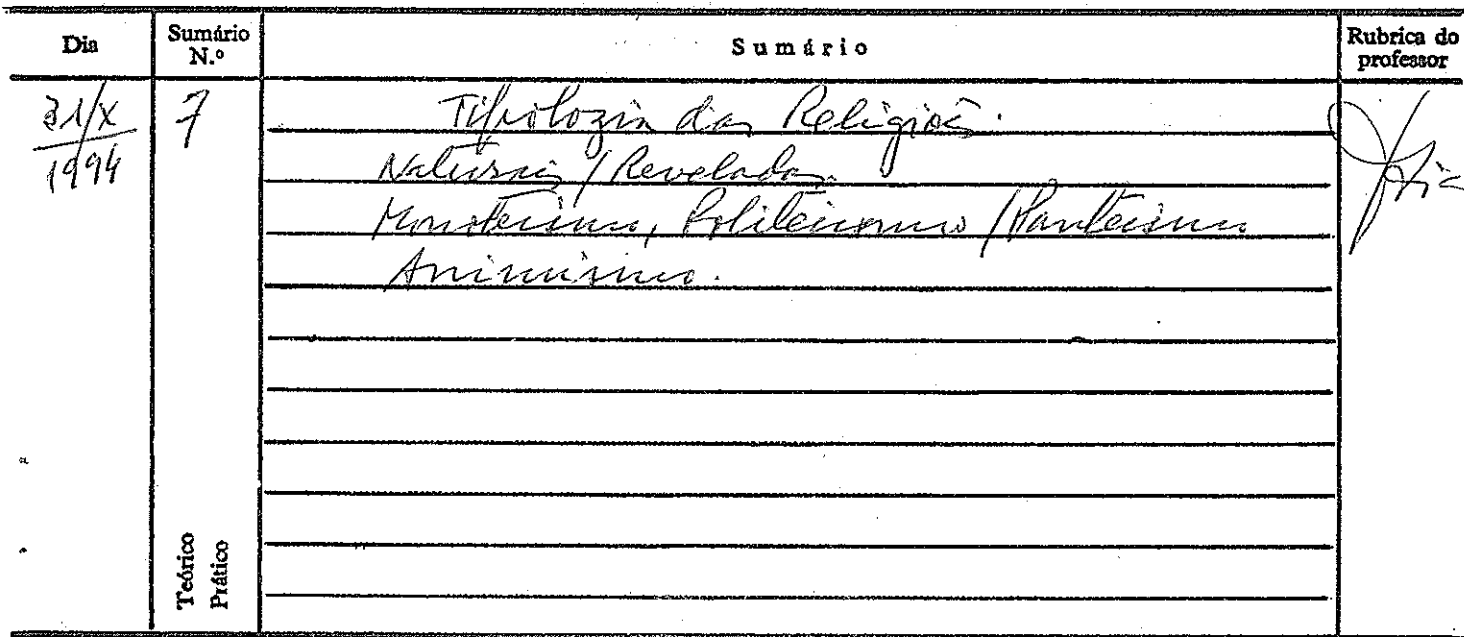 Dia Sumário N.º Sumário Rubrica do professor
31/X 1994 7 Tipologia das Religiões.
Naturais / Reveladas.
Monoteísmo, Politeísmo / Panteísmo
Animismo.
Teórico
Prático